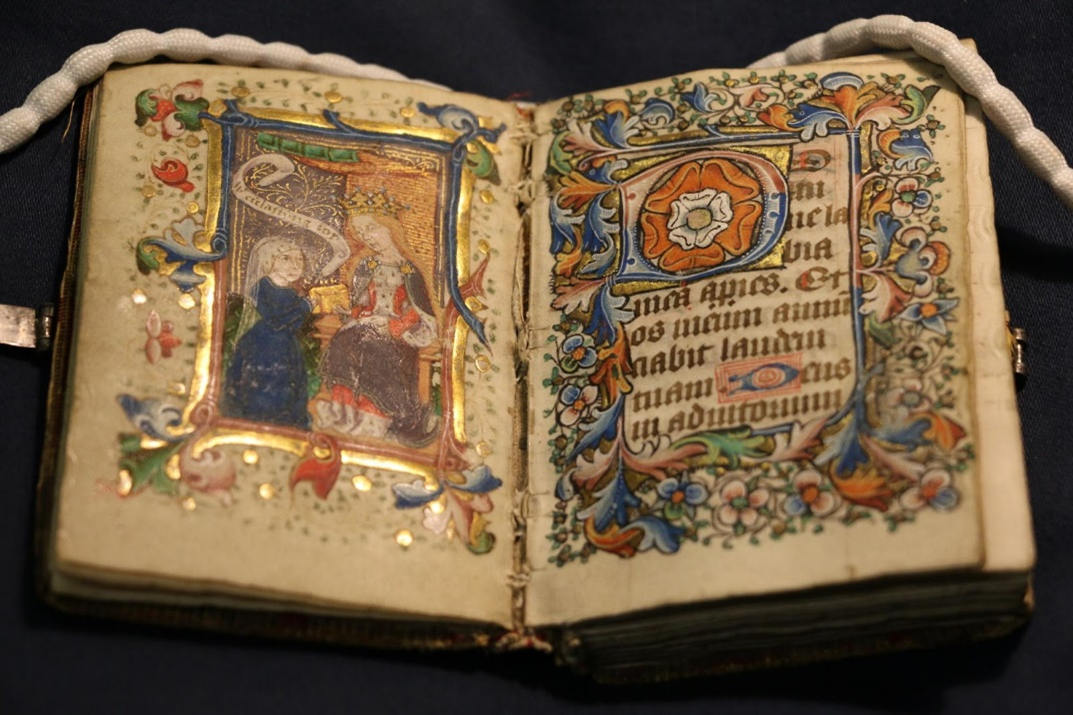 DO
mi
ne la
bia
mea apies. Et
os meum annū
tiabit laudem
tuam. Deus
in adiutorium